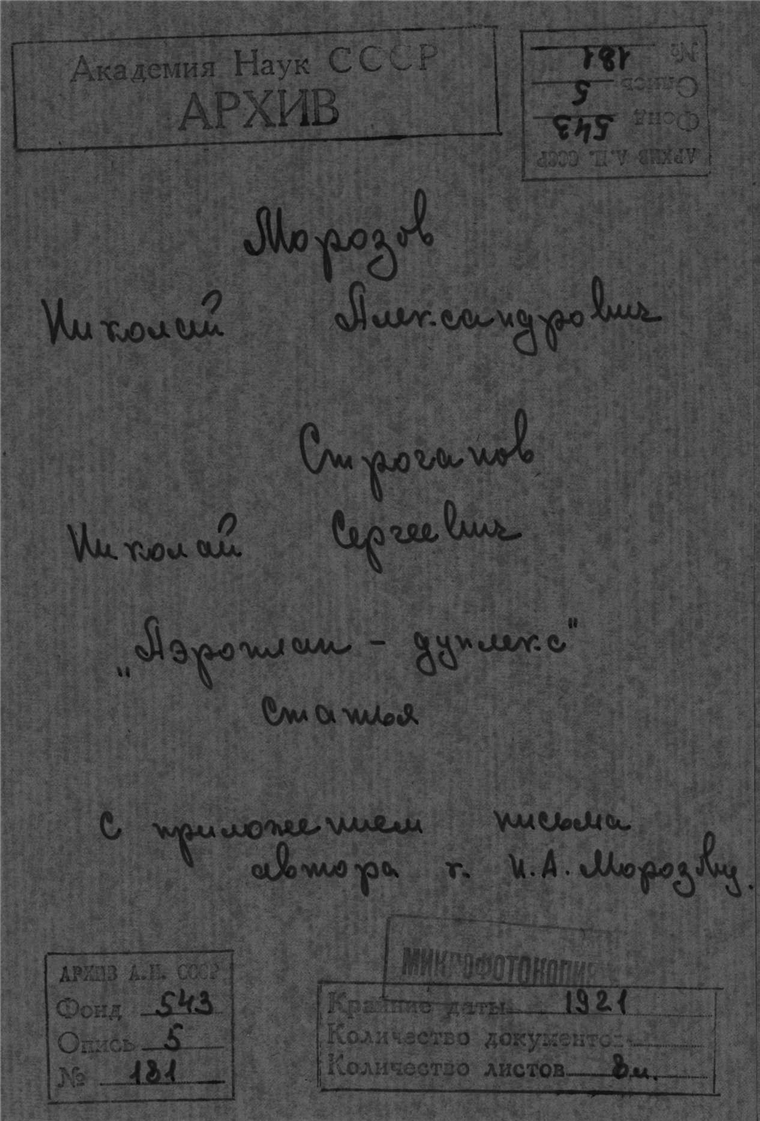 Академия Наук СССР
АРХИВ
№ 181
Опись 5
Фонд 543
АРХИВ А.Н. СССР
Морозов
Николай Александрович
Строганов
Николай Сергеевич
„Аэроплан - дуплекс"
статья
с приложением письма
автора к Н.А. Морозову.
АРХИВ А.Н. СССР
Фонд 543
Опись 5
№ 181
МИКРОФОТОКОПИЯ
Крайние даты 1921
Количество документов
Количество листов 8л.